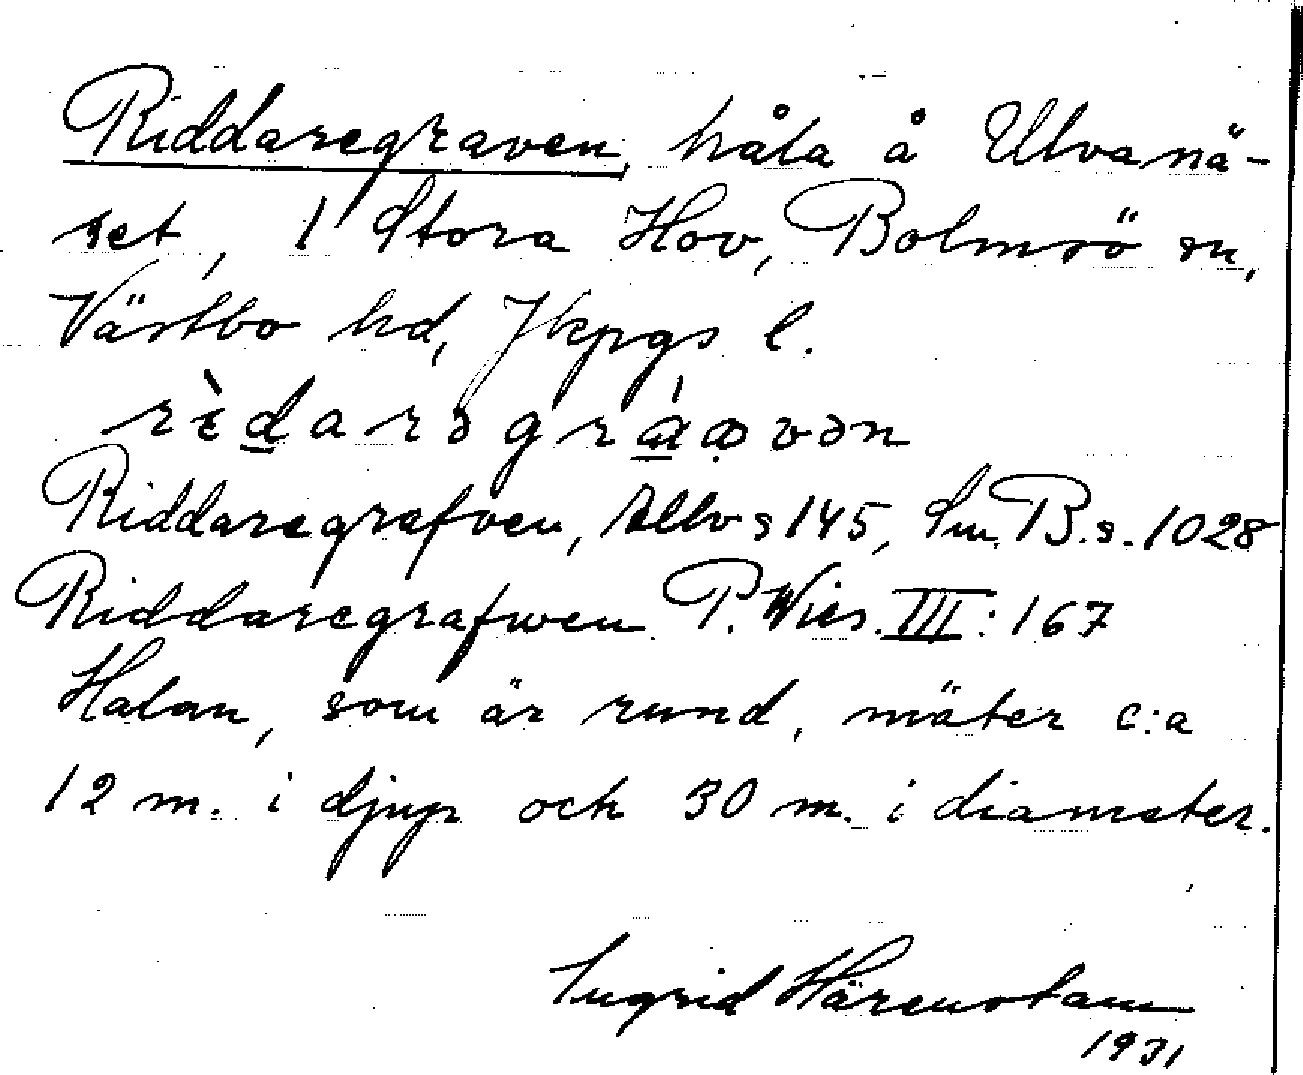 Riddaregraven, håla å Ulvanä-
set, 1 Stora Hov, Bolmsö sn,
Västbo hd, Jkpgs l.
Riddaregrafven, Allv s 145, Sm. B. s. 1028
Riddaregrafwen P. Wies. III: 167
Halan, som är rund, mäter c:a
12 m. i djup och 30 m. i diameter.
Ingrid Härenstam
1931